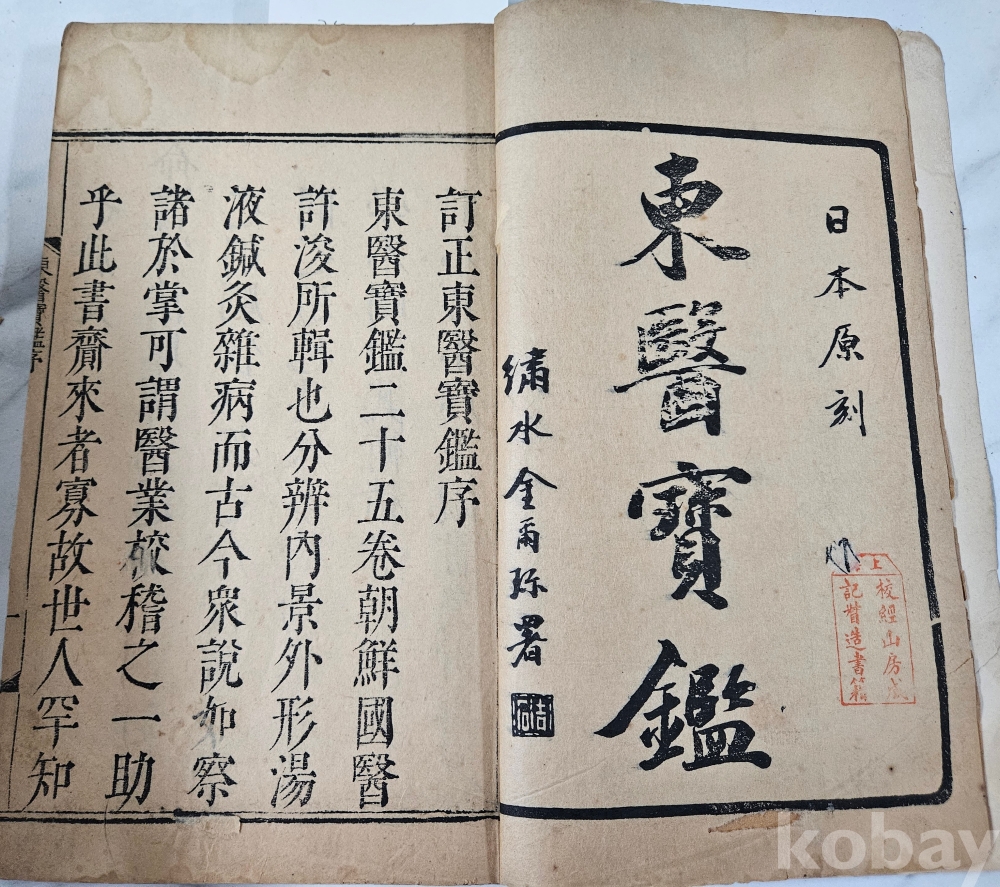 日本原刻
東醫寶鑑
繡水金爾珍署
上
校經山房成
記督造書籍
訂正東醫寶鑑序
東醫寶鑑二十五卷朝鮮國醫
許浚所輯也分辨內景外形湯
液鍼灸雜病而古今衆說如察
諸於掌可謂醫業校稽之一助
乎此書齎來者寡故世人罕知
東醫寶鑑序
一
kobay